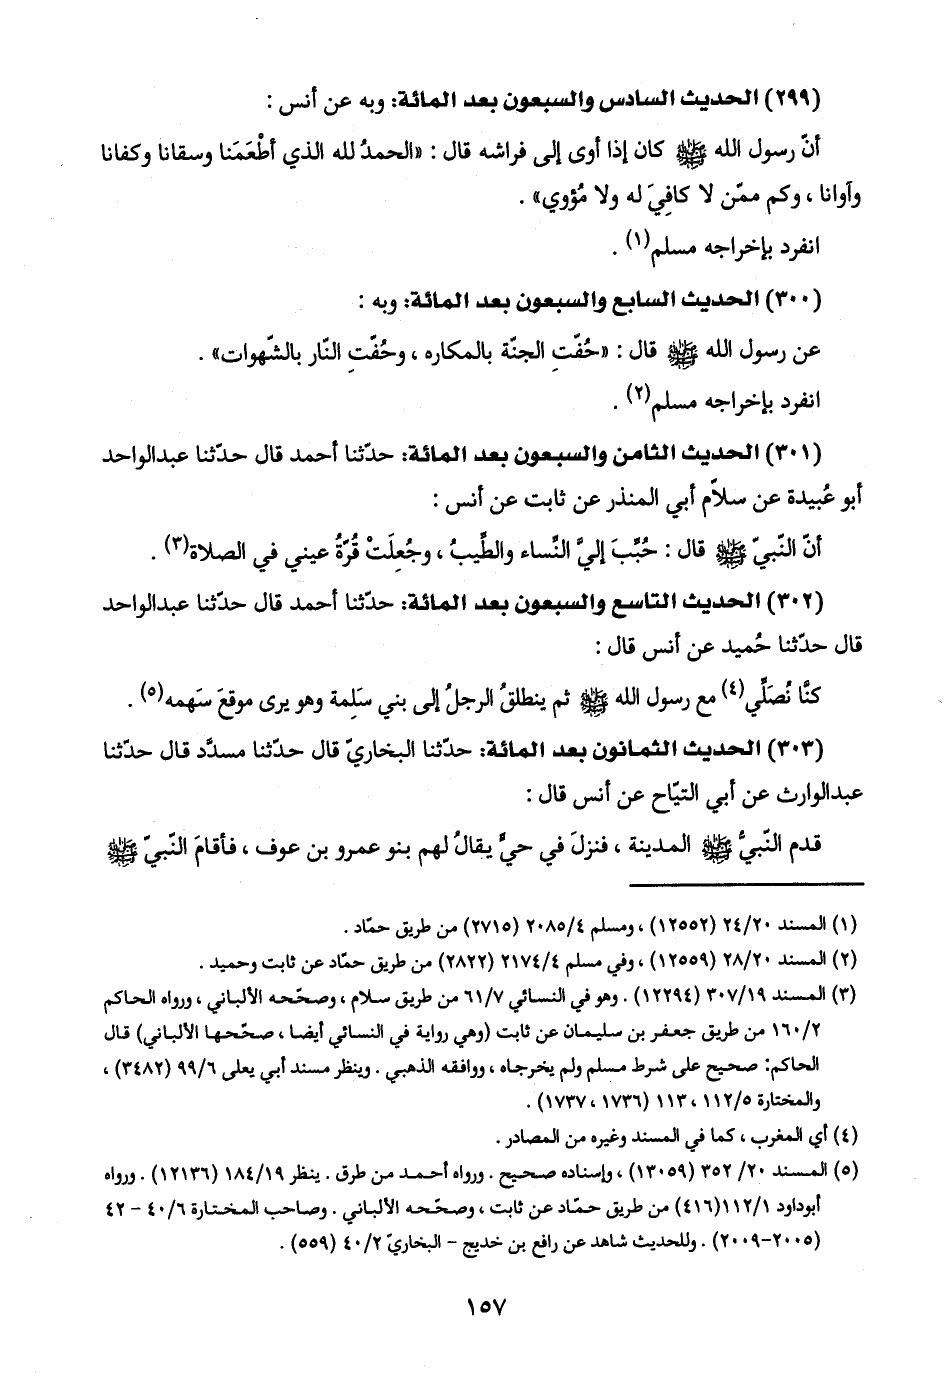 (٢٩٩) الحديث السادس والسبعون بعد المائة: وبه عن أنس :
أنّ رسول الله ﷺ كان إذا أوى إلى فراشه قال : «الحمدُ لله الذي أطْعَمَنا وسقانا وكفانا
وآوانا ، وكم ممّن لا كافِيَ له ولا مُؤوي» .
انفرد بإخراجه مسلم(١) .
(٣٠٠) الحديث السابع والسبعون بعد المائة: وبه :
عن رسول الله ﷺ قال : «حُفّتِ الجنّة بالمكاره ، وحُفّتِ النّار بالشّهوات» .
انفرد بإخراجه مسلم(٢) .
(٣٠١) الحديث الثامن والسبعون بعد المائة: حدّثنا أحمد قال حدّثنا عبدالواحد
أبو عُبيدة عن سلاّم أبي المنذر عن ثابت عن أنس :
أنّ النّبيّ ﷺ قال : حُبِّبَ إليَّ النِّساء والطِّيبُ ، وجُعِلَتْ قُرّةُ عيني في الصلاة(٣) .
(٣٠٢) الحديث التاسع والسبعون بعد المائة: حدّثنا أحمد قال حدّثنا عبدالواحد
قال حدّثنا حُميد عن أنس قال :
كنَّا نُصَلِّي(٤) مع رسول الله ﷺ ثم ينطلقُ الرجلُ إلى بني سَلِمة وهو يرى موقعَ سَهمه(٥) .
(٣٠٣) الحديث الثمانون بعد المائة: حدّثنا البخاريّ قال حدّثنا مسدَّد قال حدّثنا
عبدالوارث عن أبي التيّاح عن أنس قال :
قدم النّبيُّ ﷺ المدينة ، فنزلَ في حيٍّ يقالُ لهم بنو عمرو بن عوف ، فأقامَ النّبيّ ﷺ
(١) المسند ٢٤/٢٠ (١٢٥٥٢) ، ومسلم ٢٠٨٥/٤ (٢٧١٥) من طريق حمّاد .
(٢) المسند ٢٨/٢٠ (١٢٥٥٩) ، وفي مسلم ٢١٧٤/٤ (٢٨٢٢) من طريق حمّاد عن ثابت وحميد .
(٣) المسند ٣٠٧/١٩ (١٢٢٩٤) . وهو في النسائي ٦١/٧ من طريق سلام ، وصحّحه الألباني ، ورواه الحاكم
١٦٠/٢ من طريق جعفر بن سليمان عن ثابت (وهي رواية في النسائي أيضا ، صحّحها الألباني) قال
الحاكم: صحيح على شرط مسلم ولم يخرجاه ، ووافقه الذهبي . وينظر مسند أبي يعلى ٩٩/٦ (٣٤٨٢) ،
والمختارة ١١٢/٥ ، ١١٣ (١٧٣٦ ، ١٧٣٧) .
(٤) أي المغرب ، كما في المسند وغيره من المصادر .
(٥) المسند ٢٠/ ٣٥٢ (١٣٠٥٩) ، وإسناده صحيح . ورواه أحمد من طرق . ينظر ١٨٤/١٩ (١٢١٣٦) . ورواه
أبوداود ١١٢/١(٤١٦) من طريق حمّاد عن ثابت ، وصحّحه الألباني . وصاحب المختارة ٤٠/٦ - ٤٢
(٢٠٠٥-٢٠٠٩) . وللحديث شاهد عن رافع بن خديج - البخاريّ ٤٠/٢ (٥٥٩) .
١٥٧